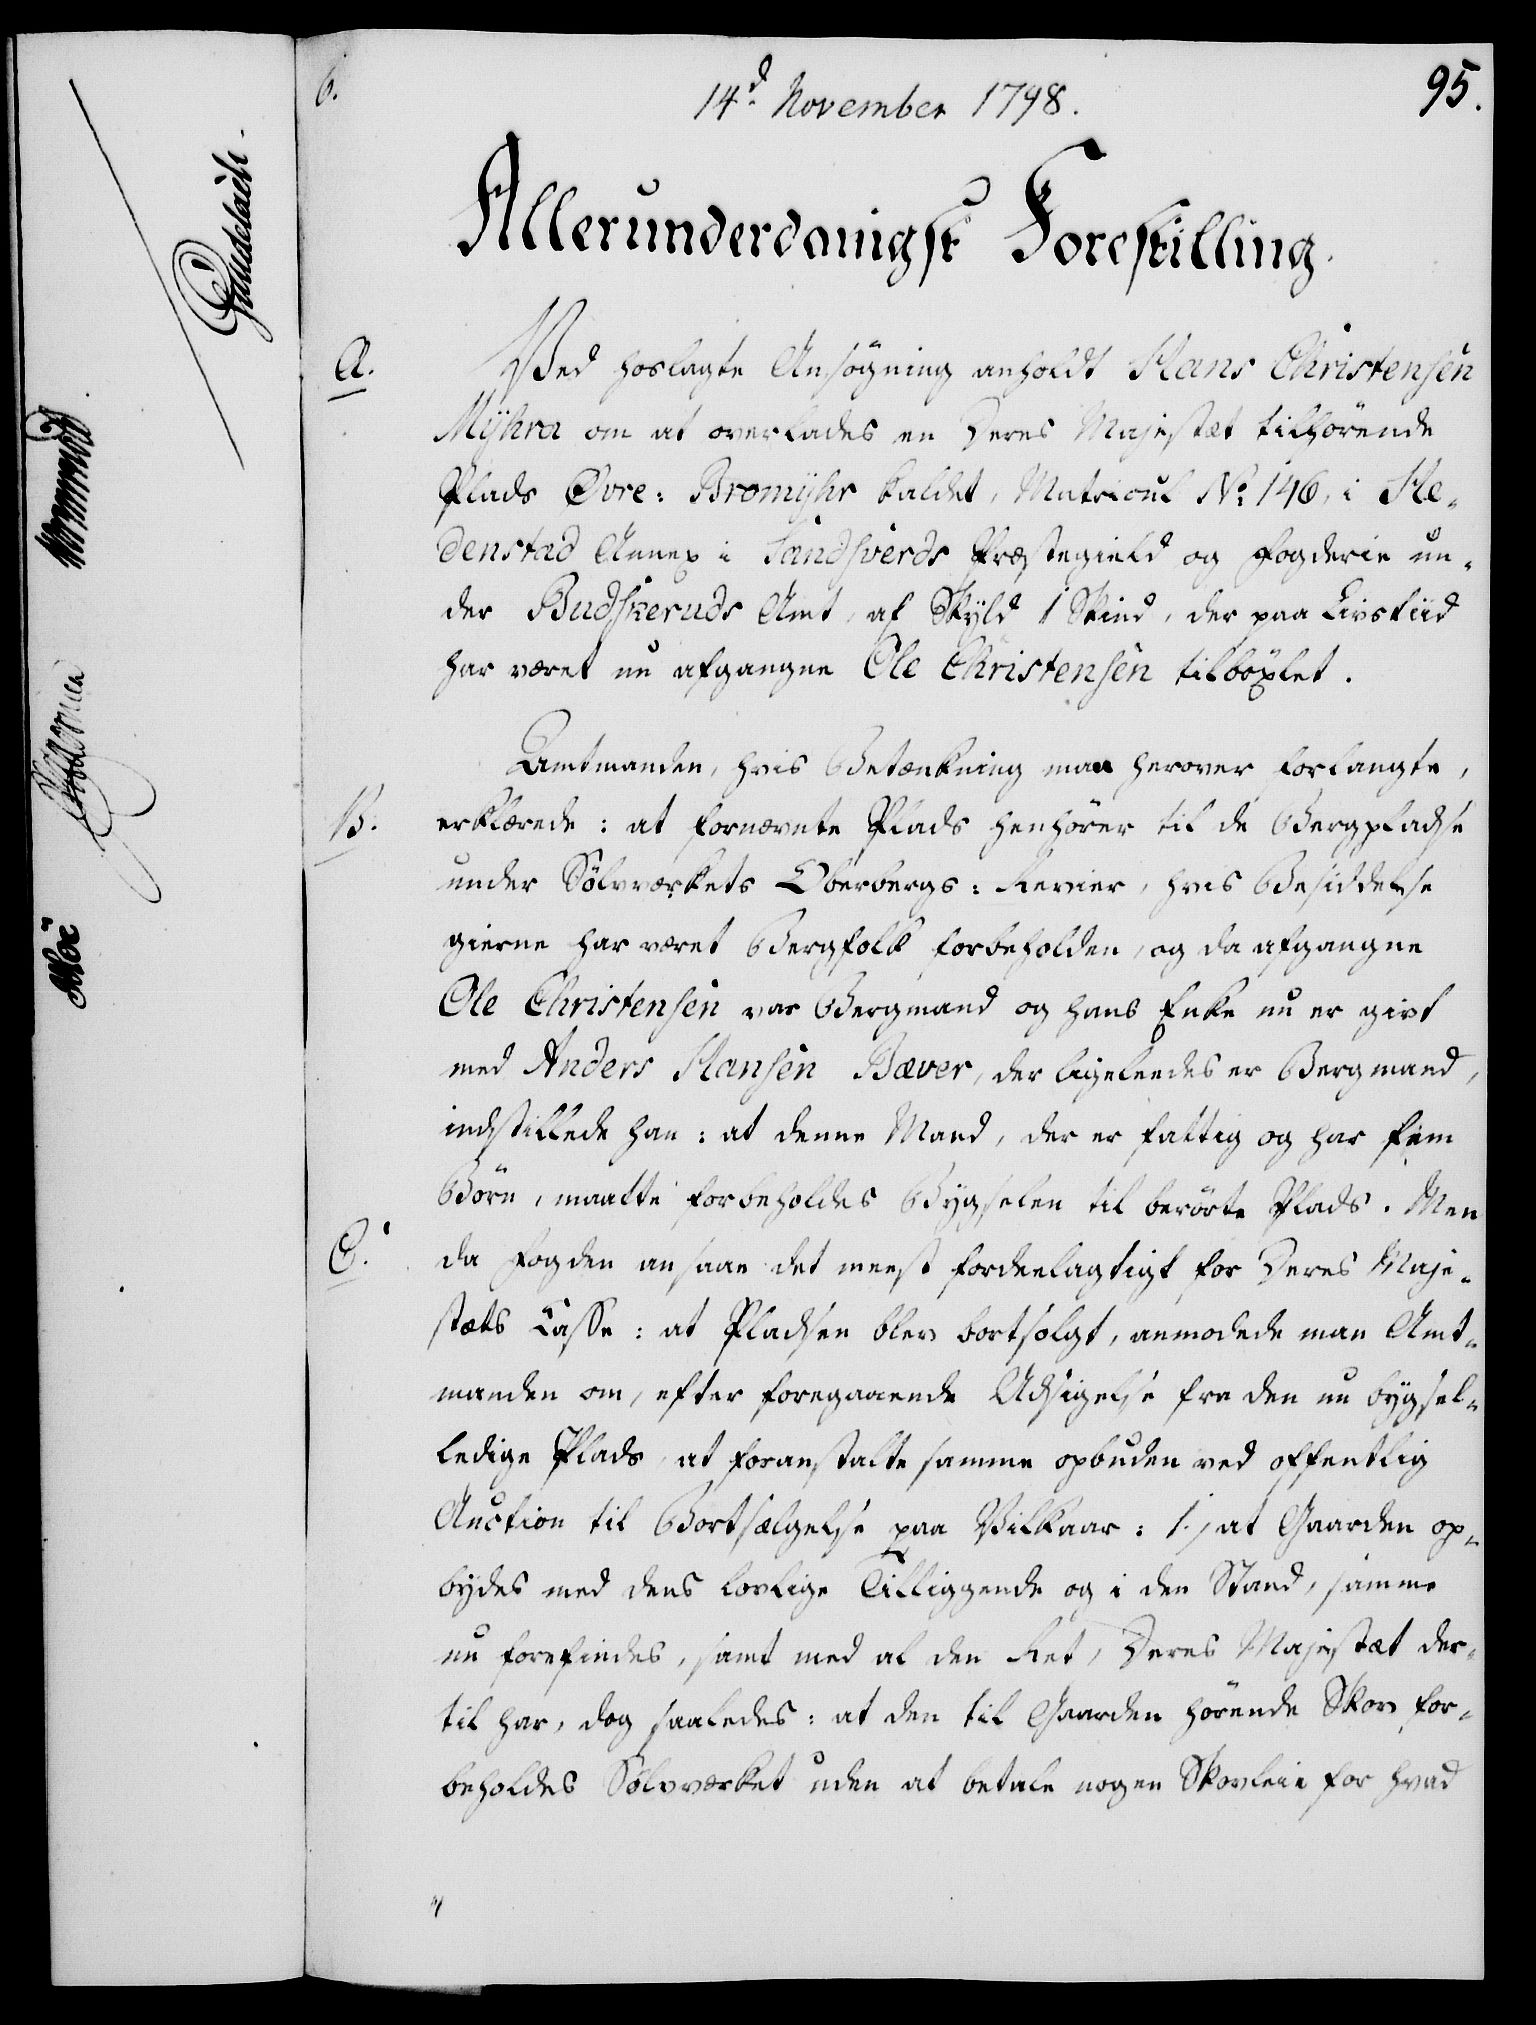 6.
14d. November 1798.
95.
Allerunderdanigst Forestilling.
A.
Ved hoslagte Ansøgning anholdt Hans Christensen
Myhra om at overlades en Deres Majestæt tilhørende
Plads Øvre: Bromyhr kaldet, Matricul No. 146, i He-
denstad Annex i Sandsverds Præstegield og Fogderie un-
der Budskeruds Amt, af Skyld 1 Skind, der paa Livstiid
har været nu afgangne Ole Christensen tilbøxlet.
Amtmanden, hvis Betænkning man herover forlangte,
B.
erklærede: at fornævnte Plads henhører til de Bergpladse
under Sølvværkets Oberbergs: Revier, hvis Besiddelse
gierne har været Bergfolk forbeholden, og da afgangne
Ole Christensen var Bergmand og hans Enke nu er givt
med Anders Hansen Bæver, der ligeleedes er Bergmand,
indstillede han: at denne Mand, der er fattig og har fem
Børn, maatte forbeholdes Bygselen til berørte Plads. Men
C.
da Fogden ansaae det meest fordeelagtigt for Deres Maje-
stæts Casse: at Pladsen blev bortsolgt, anmodede man Amt-
manden om, efter foregaaende Udsigelse fra den nu bygsel-
ledige Plads, at foranstalte samme opbuden ved offentlig
Auction til Bortsælgelse paa Vilkaar: 1.) at Gaarden op-
bydes med dens lovlige Tilliggende og i den Stand, samme
nu forefindes, samt med al den Ret, Deres Majestæt der-
til har, dog saaledes: at den til Gaarden hørende Skov for-
beholdes Sølvværket uden at betale nogen Skovleie for hvad